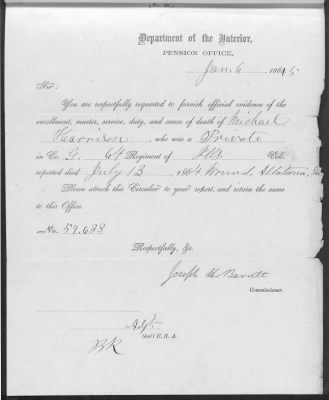 Department of the Interior,
PENSION OFFICE,
Jan 6, 1865
Sir:
You are respectfully requested to furnish official evidence of the
enrollment, muster, service, duty, and cause of death of Michael
Harrison, who was a Private
in Co. G. 64 Regiment of Ills. Vols.
reported died July 13, 1864. Wound. Allatoona,
Please attach this Circular to your report, and return the same
to this Office.
No. 59.683
Respectfully, &c.
Joseph H Barrett
Commissioner.
Adjt.
Gen'l U. S. A